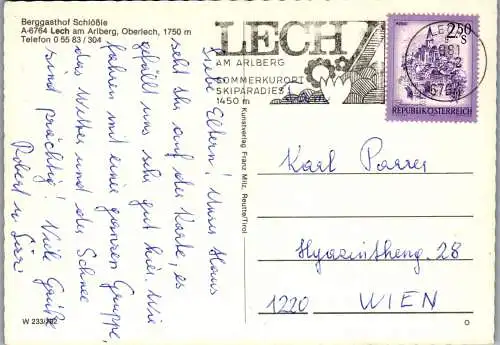 Berggasthof Schlößle
A-6764 Lech am Arlberg, Oberlech, 1750 m
Telefon 0 55 83 / 304
LECH
AM ARLBERG
SOMMERKURORT
SKIPARADIES
1450 m
2.50
S
REPUBLIK ÖSTERREICH
Liebe Eltern! Unser Haus
seht ihr auf der Karte, es
gefällt uns sehr gut hier. Wir
fahren mit einer ganzen Gruppe,
das Wetter und der Schnee
sind prächtig! Viele Grüße
Robert u.
Kunstverlag Franz Milz, Reutte/Tirol
Karl
Hyazintheng. 28
1220 WIEN
W 233/792